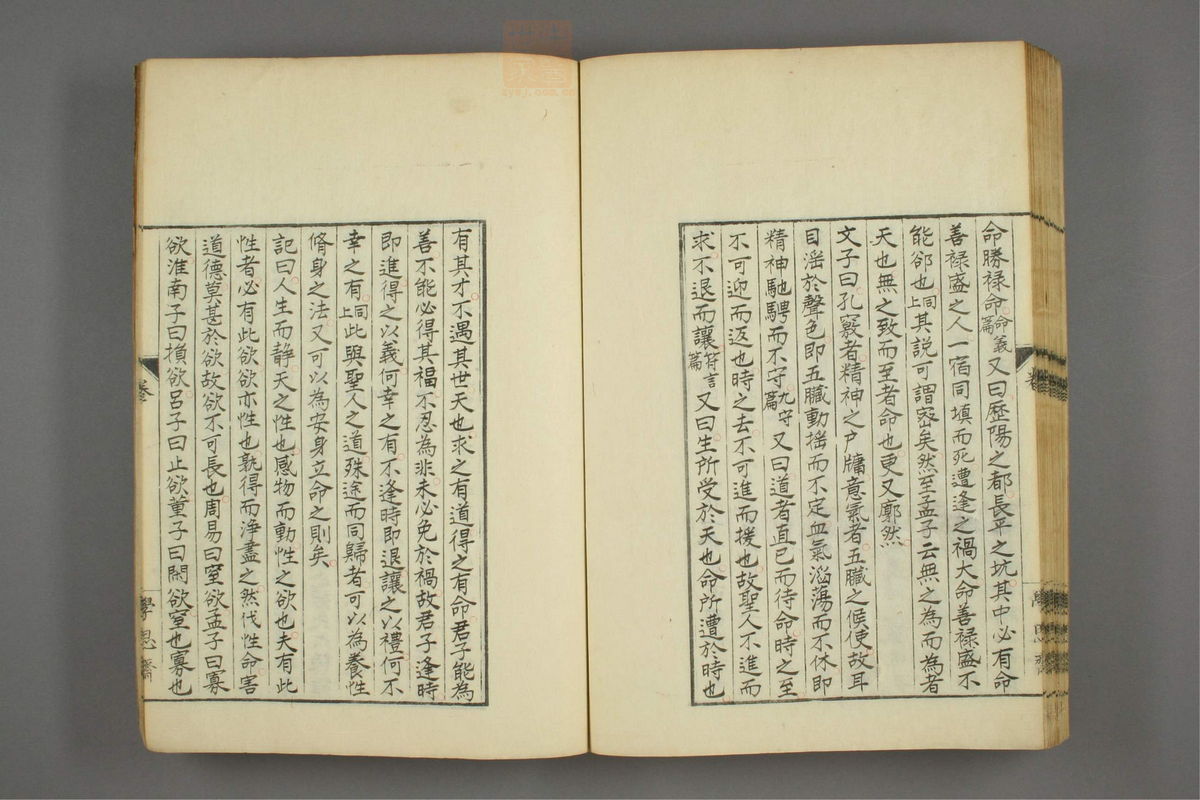 命勝祿命命義篇又曰歷陽之都長平之坑其中必有命
善祿盛之人一宿同填而死遭逢之禍大命善祿盛不
能郤也同上其說可謂密矣然至孟子云無之為而為者
天也無之致而至者命也更又廓然
文子曰孔竅者精神之戶牖意氣者五臟之候使故耳
目滛於聲色即五臟動揺而不定血氣滔蕩而不休即
精神馳騁而不守九守篇又曰道者直己而待命時之至
不可迎而返也時之去不可進而援也故聖人不進而
求不退而讓符言篇又曰生所受於天也命所遭於時也
有其才不遇其世天也求之有道得之有命君子能為
善不能必得其福不忍為非未必免於禍故君子逢時
即進得之以義何幸之有不逢時即退讓之以禮何不
幸之有同上此與聖人之道殊途而同歸者可以為養性
脩身之法又可以為安身立命之則矣
記曰人生而静天之性也感物而動性之欲也夫有此
性者必有此欲欲亦性也孰得而淨盡之然伐性命害
道德莫甚於欲故欲不可長也周易曰窒欲孟子曰寡
欲淮南子曰損欲呂子曰止欲董子曰閑欲窒也寡也
卷
學思齋
zysj.com.cn